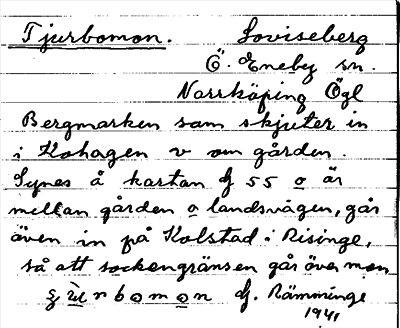 Tjurbomon. Loviseberg
Ö. Eneby sn.
Norrköping Ögl
Bergmarken som skjuter in
i Kohagen v om gården.
Synes å kartan
55 o är
mellan gården o landsvägen, går
även in på Kolstad i Risinge,
så att sockengränsen går över mon
Rämminge
1941